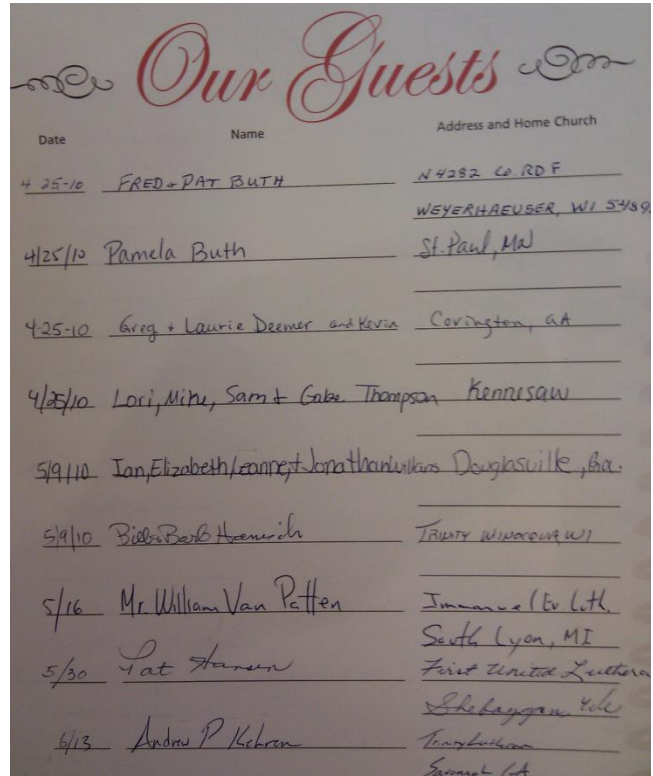 Our Guests
Date Name Address and Home Church
4 25-10 FRED & PAT BUTH N4282 CO. RD F
WEYERHAEUSER, WI 5489
4/25/10 Pamela Buth St. Paul, MN
4-25-10 Greg + Laurie Deemer and Kevin Covington, GA
4/25/10 Lori, Mike, Sam + Gabe Thompson Kennesaw
5/9/10 Ian, Elizabeth, Leanne, + Jonathan Douglasville, Ga.
5/9/10 Bill & Barb TRINITY WI
5/16 Mr. William Van Patten Immanuel Ev. Luth.
South Lyon, MI
5/30 Pat Hansen First United Luthera
Sheboygan
6/13 Andrew P